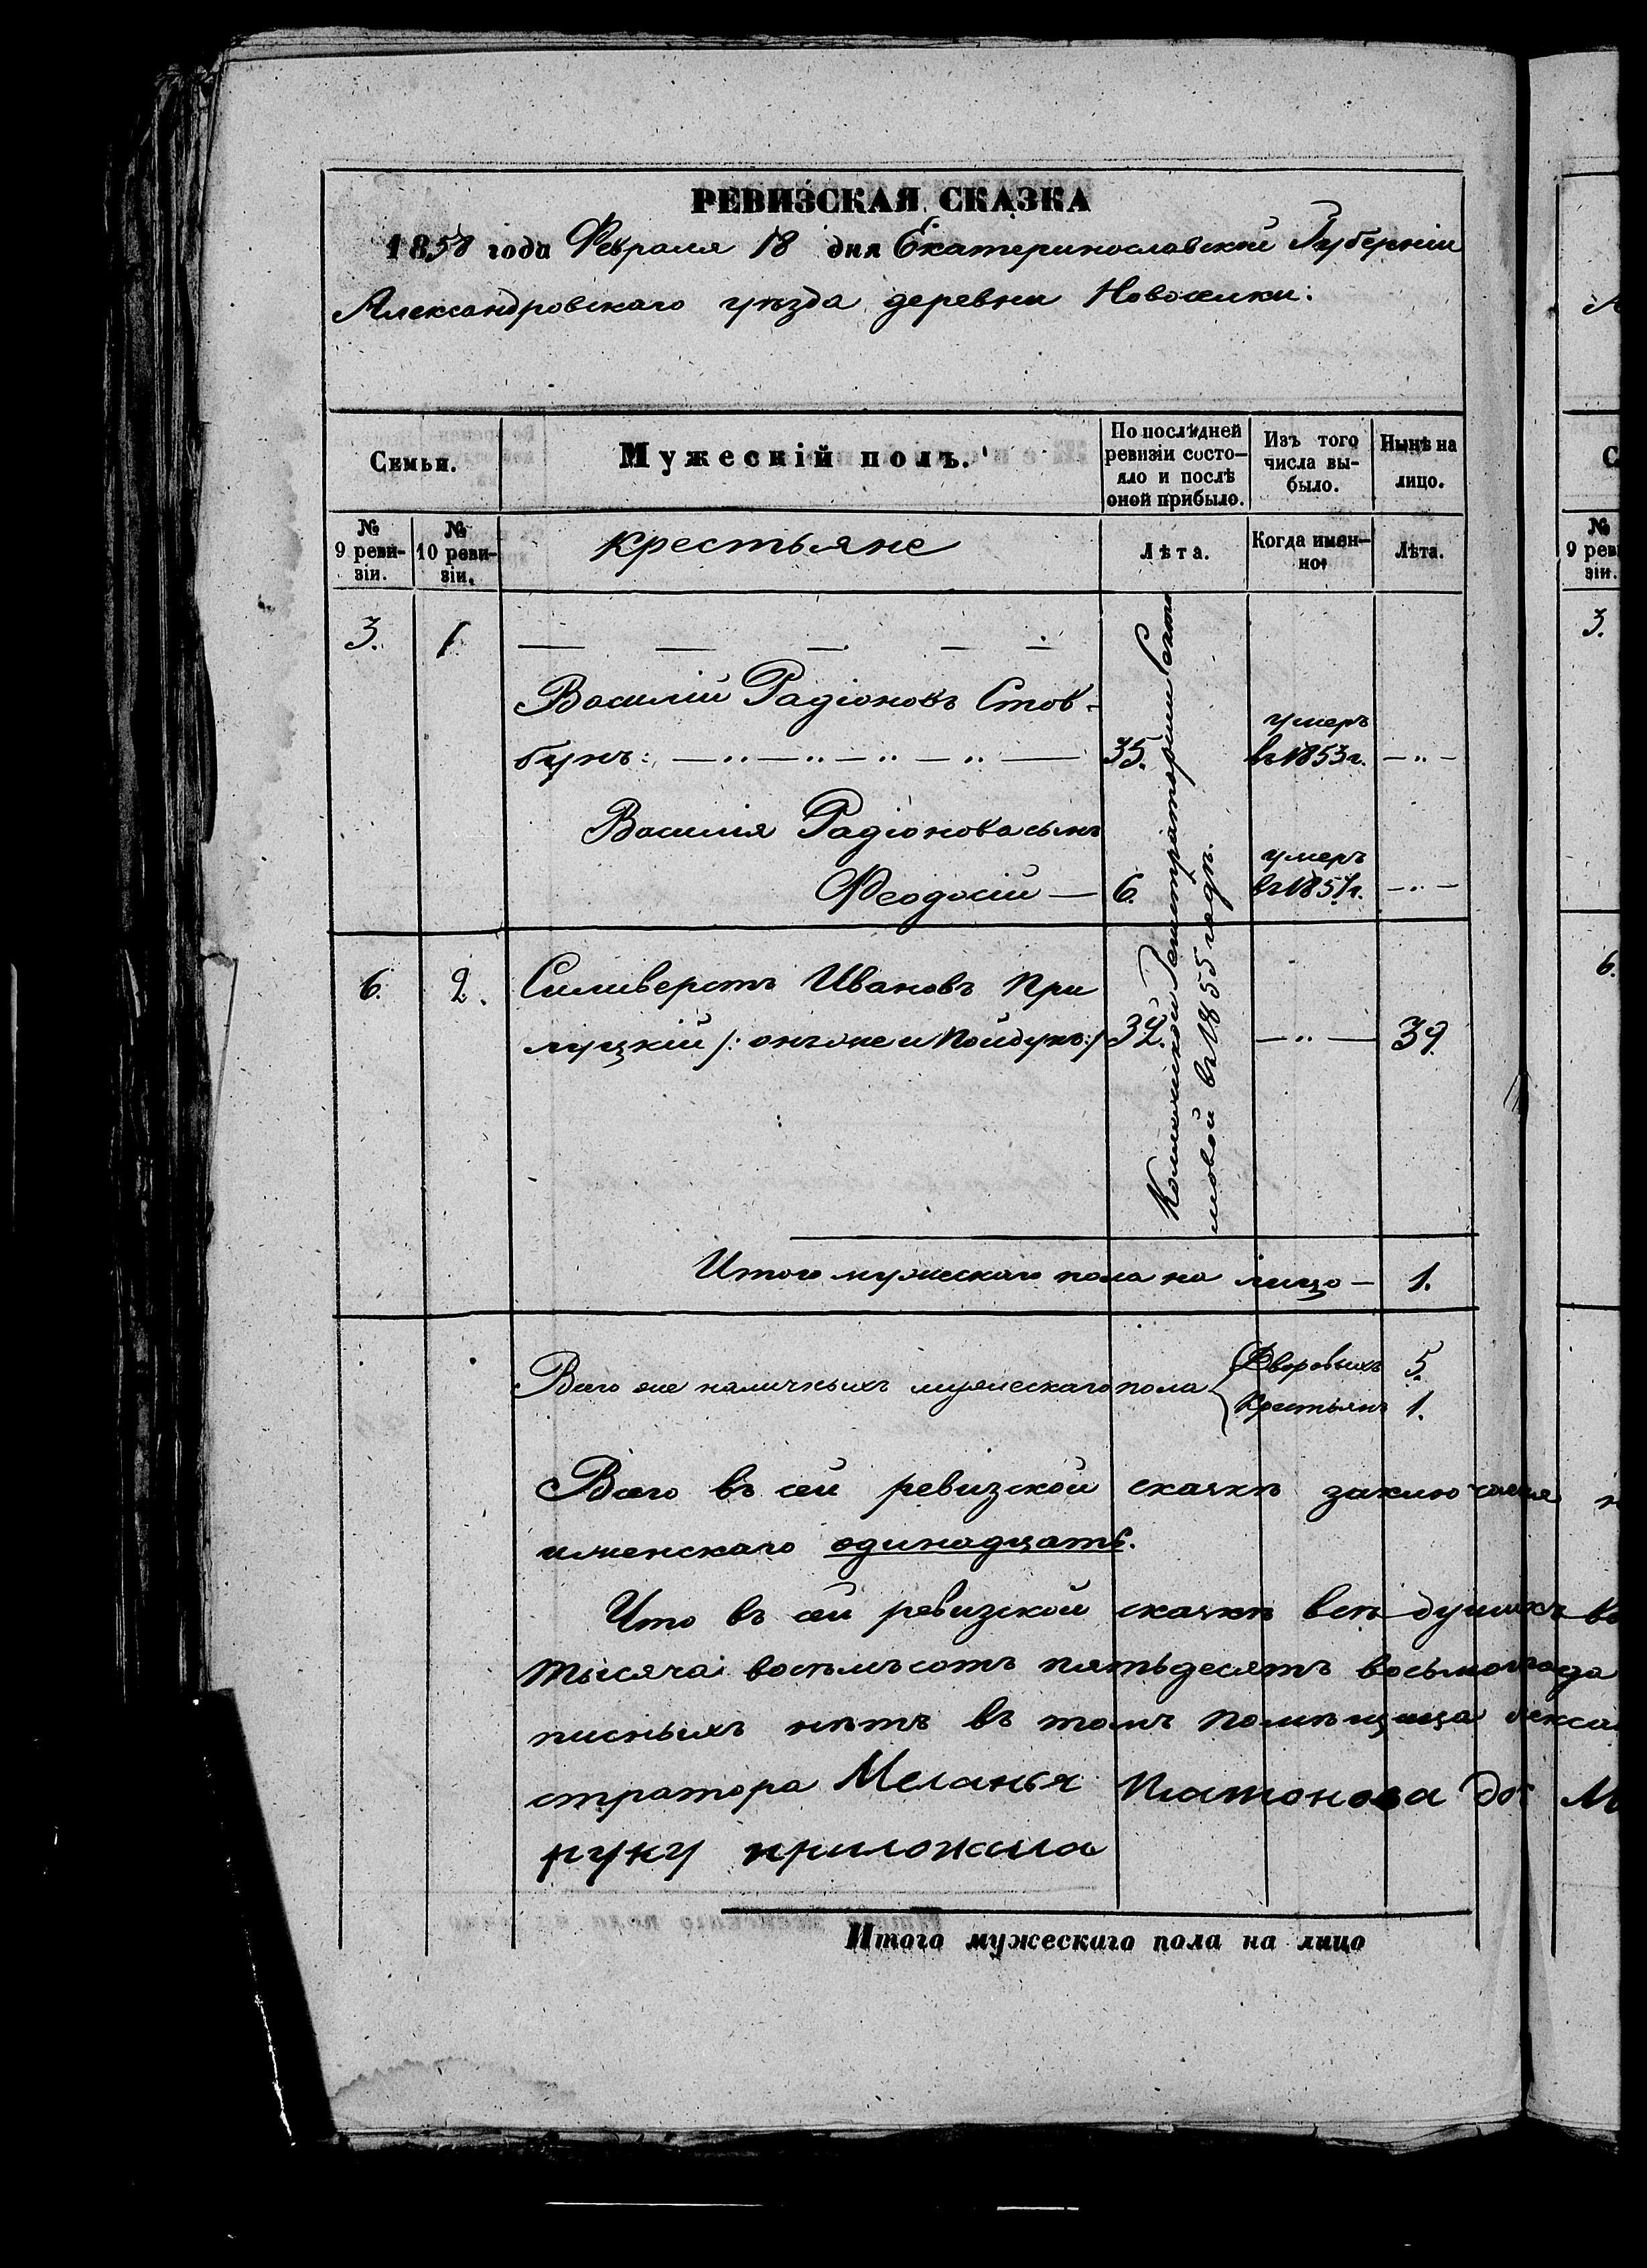 РЕВИЗСКАЯ СКАЗКА
1858 года Февраля 18 дня Екатеринославской Губерніи
Александровскаго уѣзда деревни Новоселки:
Семьи.
Мужескій полъ.
По послѣдней
ревизіи состо-
яло и послѣ
оной прибыло.
Изъ того
числа вы-
было.
Нынѣ на
лицо.
№
9 реви-
зіи.
№
10 реви-
зіи.
крестьяне
Лѣта.
Когда имен-
но.
Лѣта.
3. 1
Василій Радіоновъ Стов-
бунъ: 35. умеръ
въ 1853 г.
Василія Радіонова сынъ
Феодосій 6. умеръ
въ 1857 г.
6. 2. Силиверстъ Ивановъ При
луцкій /: онъ же и Пойдунъ :/ 32. 39
Регистраторши
въ 1855 годѣ.
Итого мужескаго пола на лицо 1.
Всего же наличныхъ мужескаго пола
Дворовыхъ 5.
Крестьянъ 1.
Всего въ сей ревизской сказкѣ
женскаго одинадцать.
Что въ сей ревизской сказкѣ всѣ
тысяча восемьсотъ пятьдесятъ восьмого года
писныхъ нѣтъ въ томъ помѣщица
стратора Меланья Платонова до
руку приложила
Итого мужескаго пола на лицо
С
№
9 рев
зіи.
3.
6.